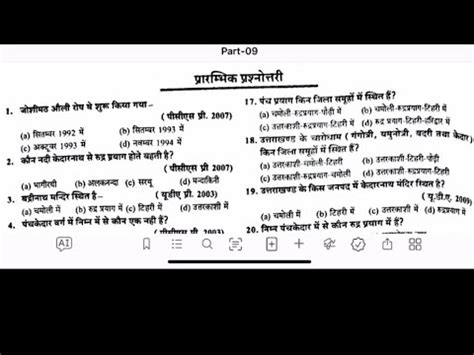 Part-09
प्रारम्भिक प्रश्नोत्तरी
1. जोशीमठ औली रोप वे शुरू किया गया–
( पीसीएस प्री. 2007)
(a) सितम्बर 1992 में (b) सितम्बर 1993 में
(c) अक्टूबर 1993 में (d) नवम्बर 1994 में
2. कौन नदी केदारनाथ से रुद्र प्रयाग होते बहती है?
(पीसीएस प्री 2007)
(a) भागीरथी (b) अलकनन्दा (c) सरयू (d) मन्दाकिनी
3. बद्रीनाथ मन्दिर स्थित है– (यूडीए प्री. 2003)
(a) चमोली में (b) रुद्र प्रयाग में (c) टिहरी में (d) उत्तरकाशी में
4. पंचकेदार वर्ग में निम्न में से कौन एक नही है?
(पीसीएस प्री. 2005)
17. पंच प्रयाग किन जिला समूहों में स्थित हैं?
(a) चमोली-रुद्रप्रयाग-पौड़ी में (b) चमोली-रुद्रप्रयाग-टिहरी में
(c) उत्तरकाशी-रुद्रप्रयाग-टिहरी में (d) रुद्रप्रयाग-टिहरी-हरिद्वार में
18. उत्तराखण्ड के चारोधाम ( गंगोत्री, यमुनोत्री, बदरी तथा केदार)
किन जिला समूहों में स्थित हैं?
(a) उत्तरकाशी-चमोली-टिहरी (b) उत्तरकाशी-टिहरी-पौड़ी
(c) उत्तरकाशी-रुद्रप्रयाग-टिहरी (d) उत्तरकाशी-रुद्रप्रयाग-चमोली
19. उत्तराखण्ड के किस जनपद में केदारनाथ मंदिर स्थित है?
( यू.डी.ए. 2009)
(a) चमोली में (b) टिहरी में (c) उत्तरकाशी में (d) रुद्रप्रयाग में
20. निम्न पंचकेदार में से कौन रुद्र प्रयाग में हैं?
AI